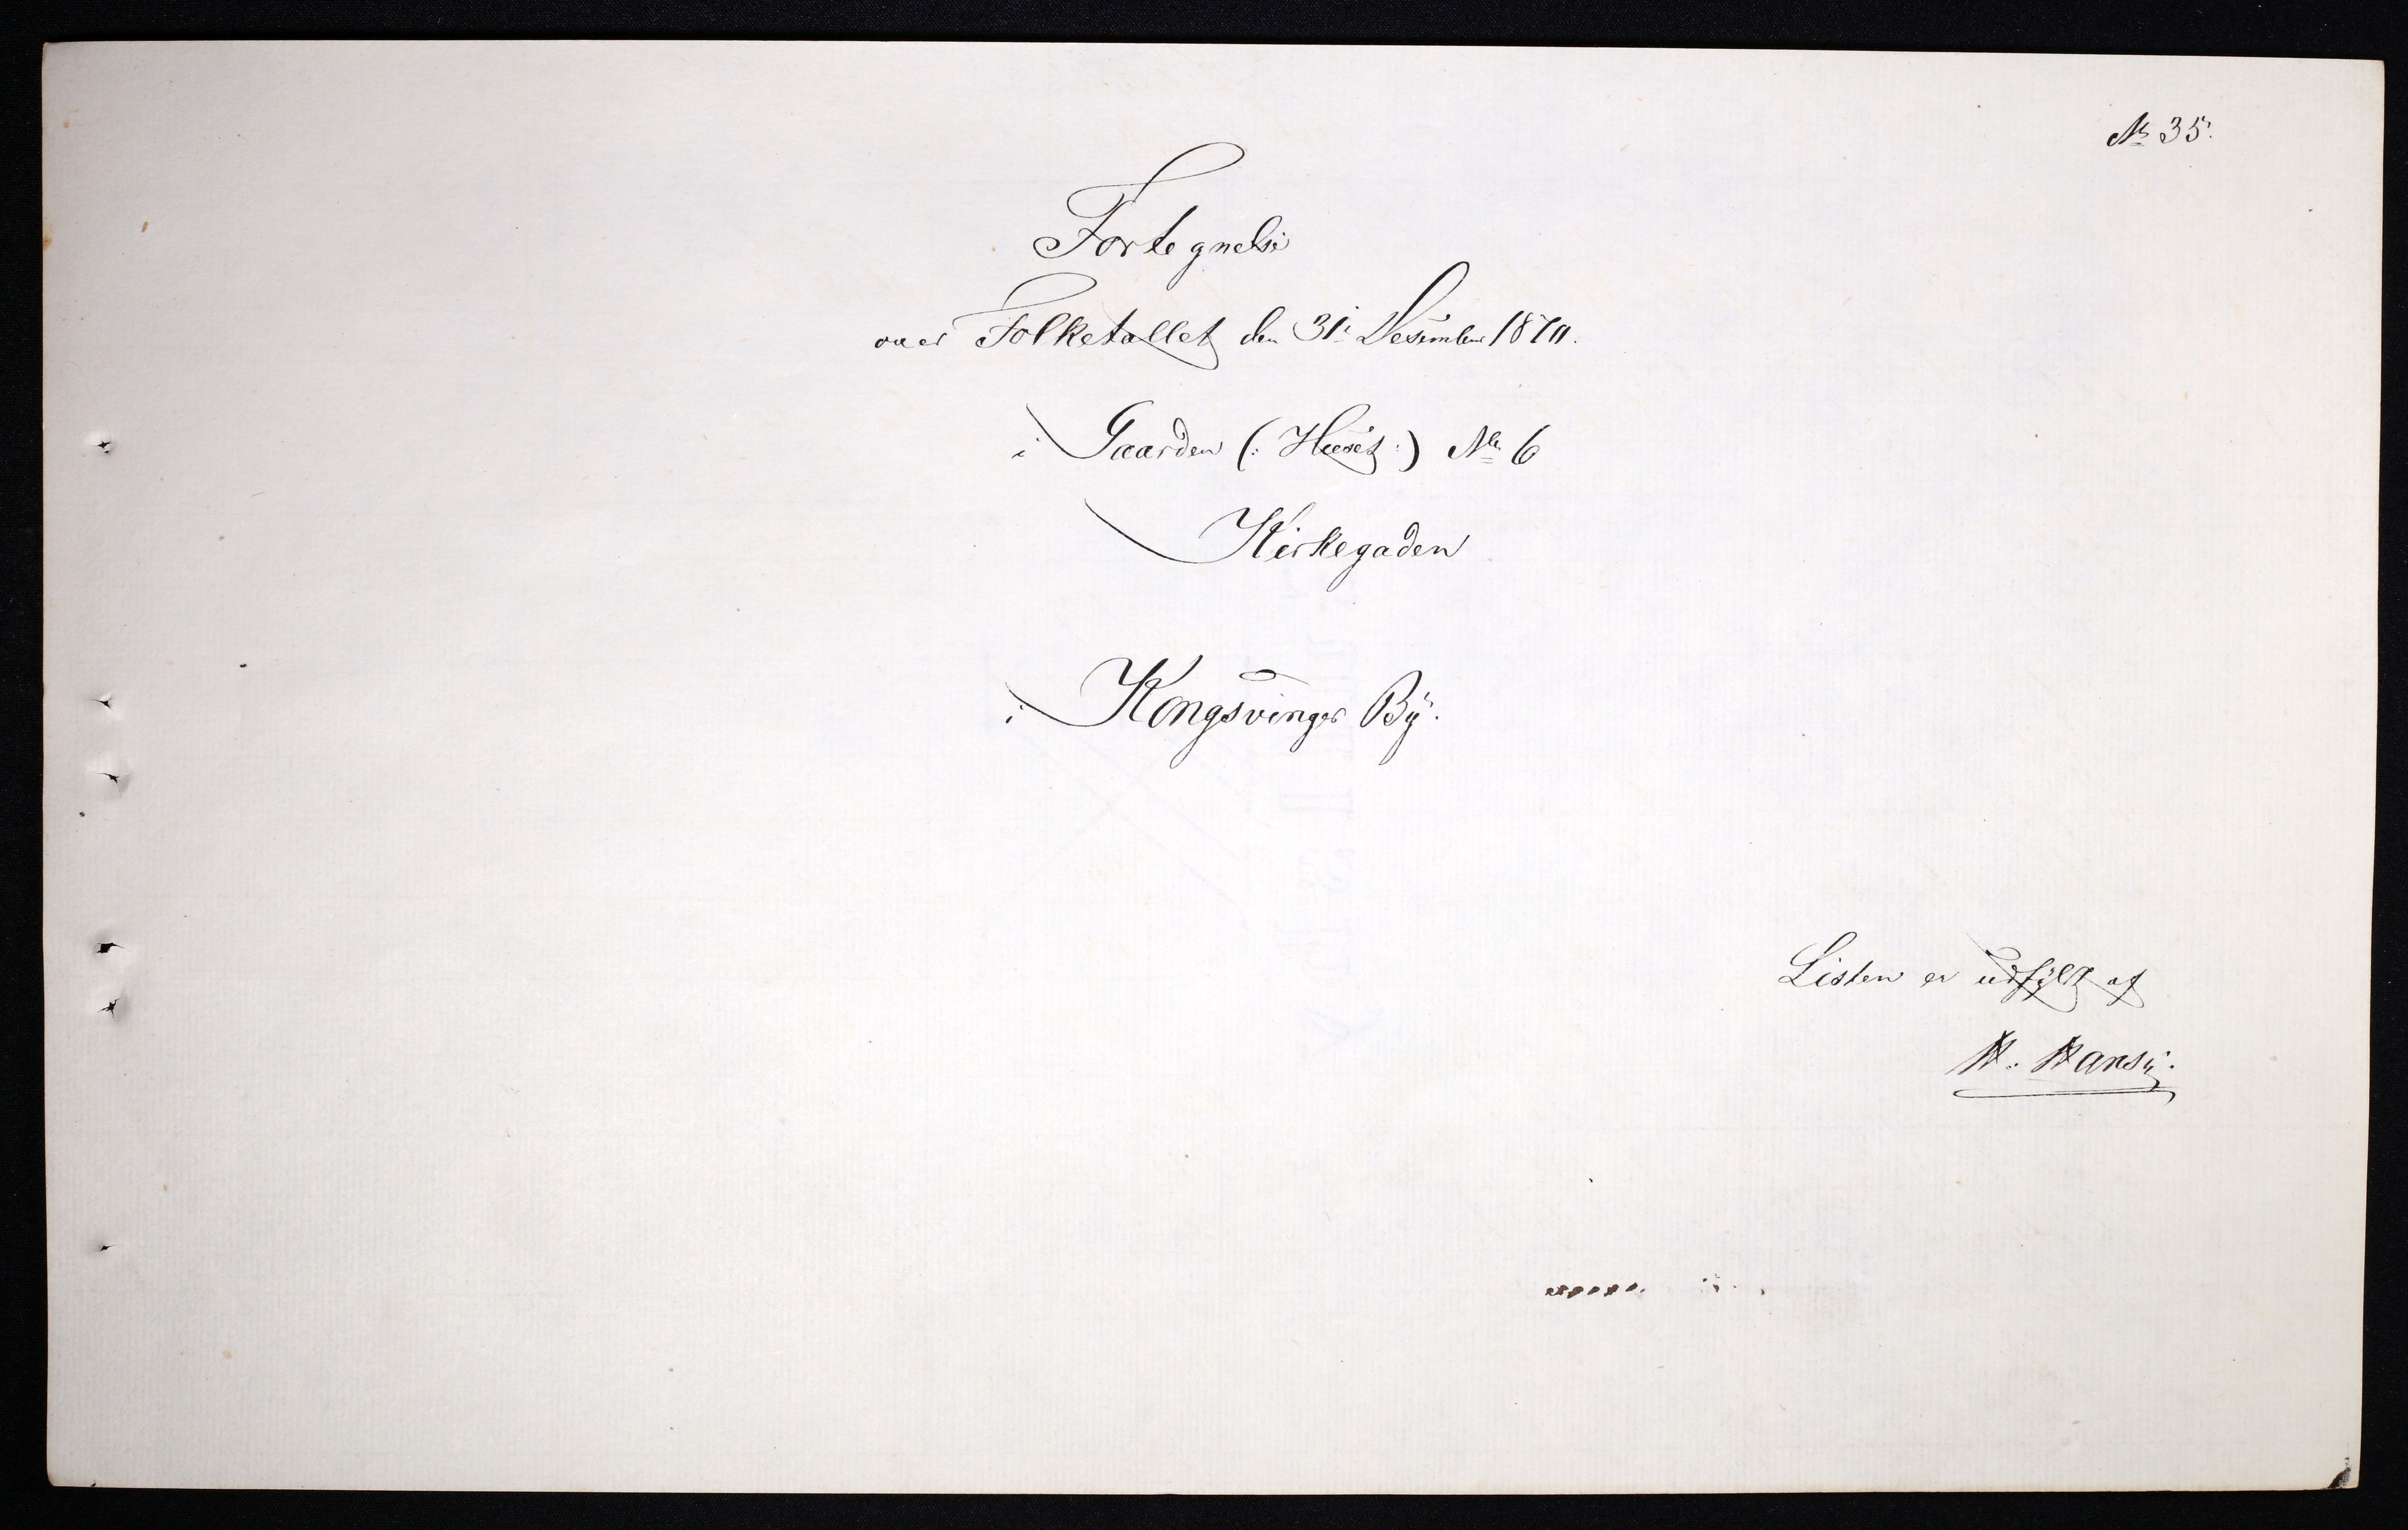 No 35.
Fortegnelse
over Folketallet den 31te Desember 1870.
i Gaarden (: Huset :) No 6
Kirkegaden
i Kongsvinger By.
Listen er udfylt af
H. Hansen.